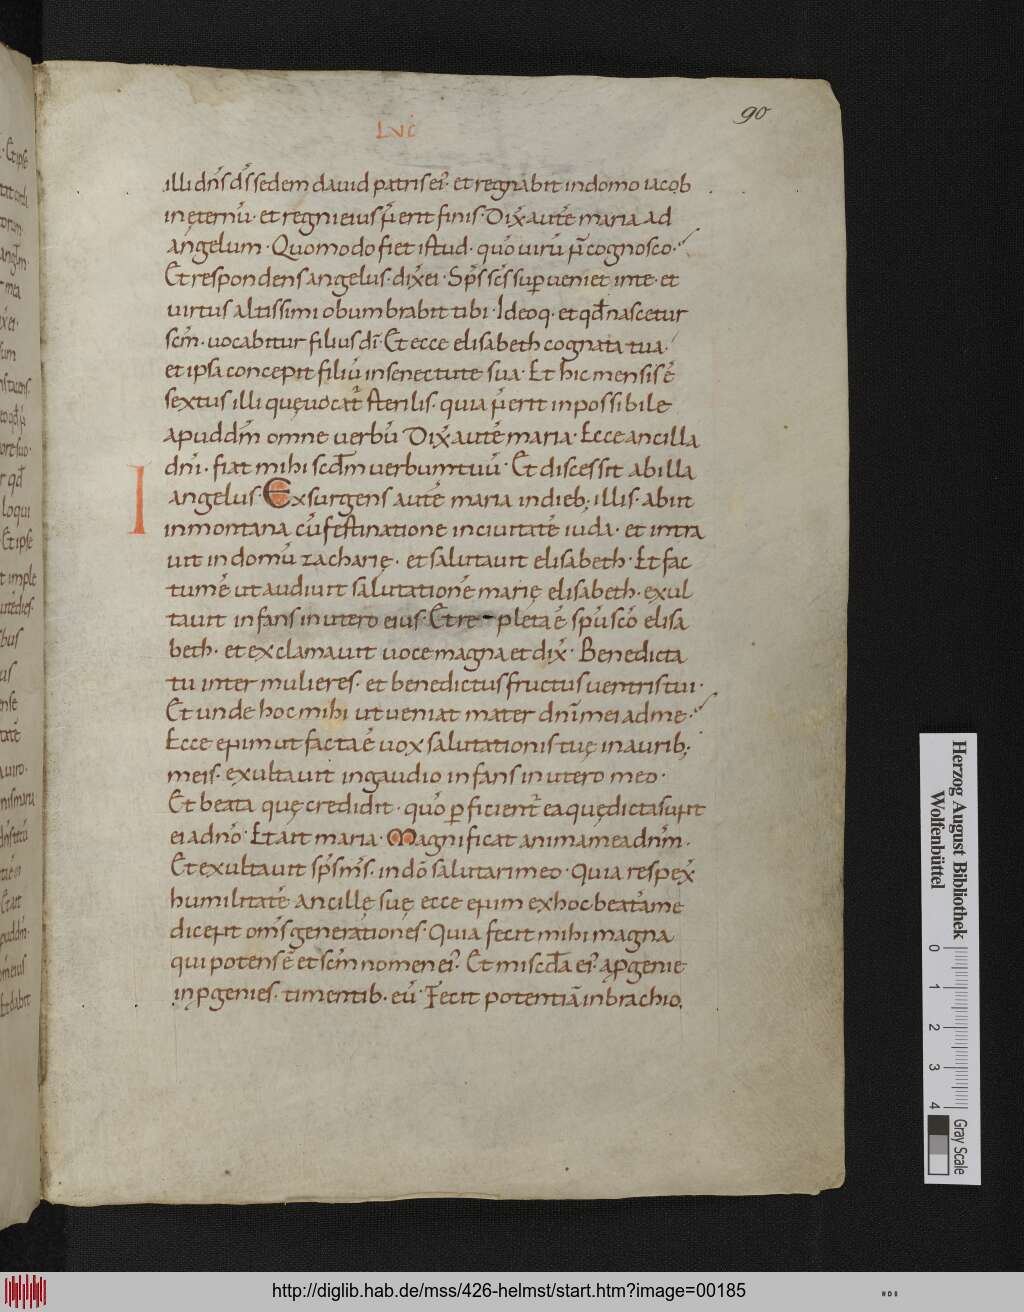 90
Luc̄
illi dn̄s ds̄ sedem dauid patris ei᾽· et regnabit in domo iacob
in ęternū· et regni eius n̄ erit finis· Dix̄ autē maria ad
angelum· Quomodo fiet istud· qūo uirū n̄ cognosco·
Et respondens angelus· dix̄ ei· Sp̄s sc̄s superueniet in te· et
uirtus altissimi obumbrabit tibi· Ideoq· et qd̄ nascetur
sc̄m· uocabitur filius dī· Et ecce elisabeth cognata tua·
et ipsa concepit filiū in senectute sua· Et hic mensis ē
sextus illi quę uocat᾽ sterilis· quia n̄ erit inpossibile
apud dm̄ omne uerbū Dix̄ autē maria· Ecce ancilla
dnī· fiat mihi scdm̄ uerbum tuū· Et discessit ab illa
I
angelus· Exsurgens autē maria in dieb; illis· abiit
in montana cū festinatione in ciuitatē iuda· et intra
uit in domū zacharię· et salutauit elisabeth· Et fac
tum ē ut audiuit salutationē marię elisabeth· exul
tauit infans in utero eius· Et re-pleta ē spū scō elisa
beth· et exclamauit uoce magna et dix̄· Benedicta
tu inter mulieres· et benedictus fructus uentris tui·
Et unde hoc mihi ut ueniat mater dnī mei ad me·
Ecce enim ut facta ē uox salutationis tuę in aurib;
meis· exultauit in gaudio infans in utero meo·
Et beata quę credidit· qūo ꝑficient᾽ ea quę dicta sunt
ei a dnō· Et ait maria· Magnificat anima mea dnm̄·
Et exultauit sp̄s ms̄· in dō salutari meo· Quia respex̄
humilitatē ancillę suę ecce enim ex hoc beatā me
dicent om̄s generationes· Quia fecit mihi magna
qui potens ē et sc̄m nomen ei᾽· Et miscd̄a ei᾽· a ꝓgenie
in ꝓgenies· timentib· eū· Fecit potentiā in brachio
Herzog August Bibliothek
Wolfenbüttel
0 1 2 3 4
Gray Scale
http://diglib.hab.de/mss/426-helmst/start.htm?image=00185